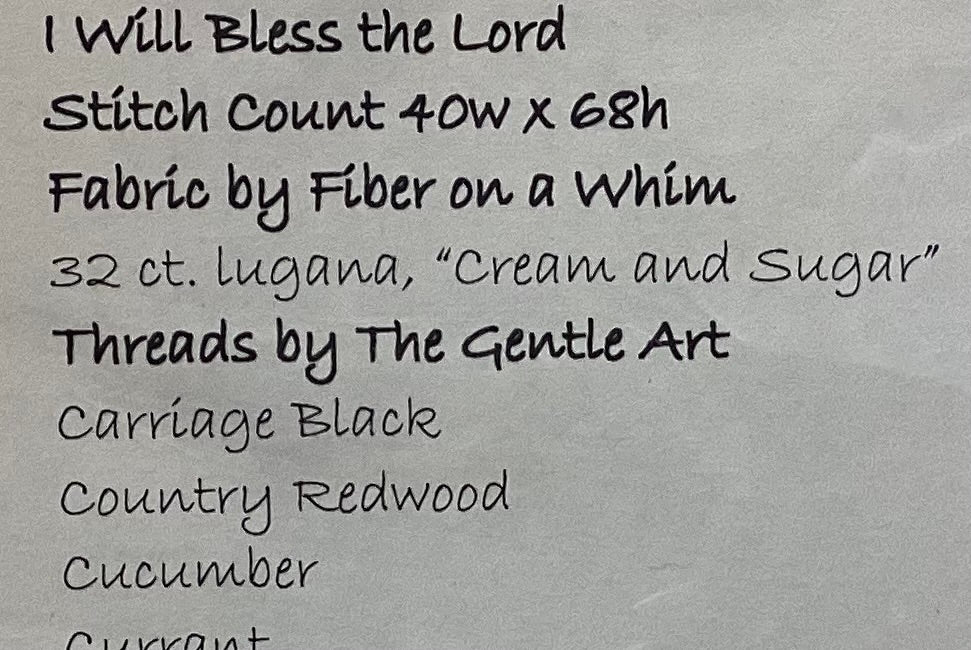 I Will Bless the Lord
Stitch Count 40w x 68h
Fabric by Fiber on a Whim
32 ct. lugana, “Cream and Sugar”
Threads by The Gentle Art
Carriage Black
Country Redwood
Cucumber
Currant